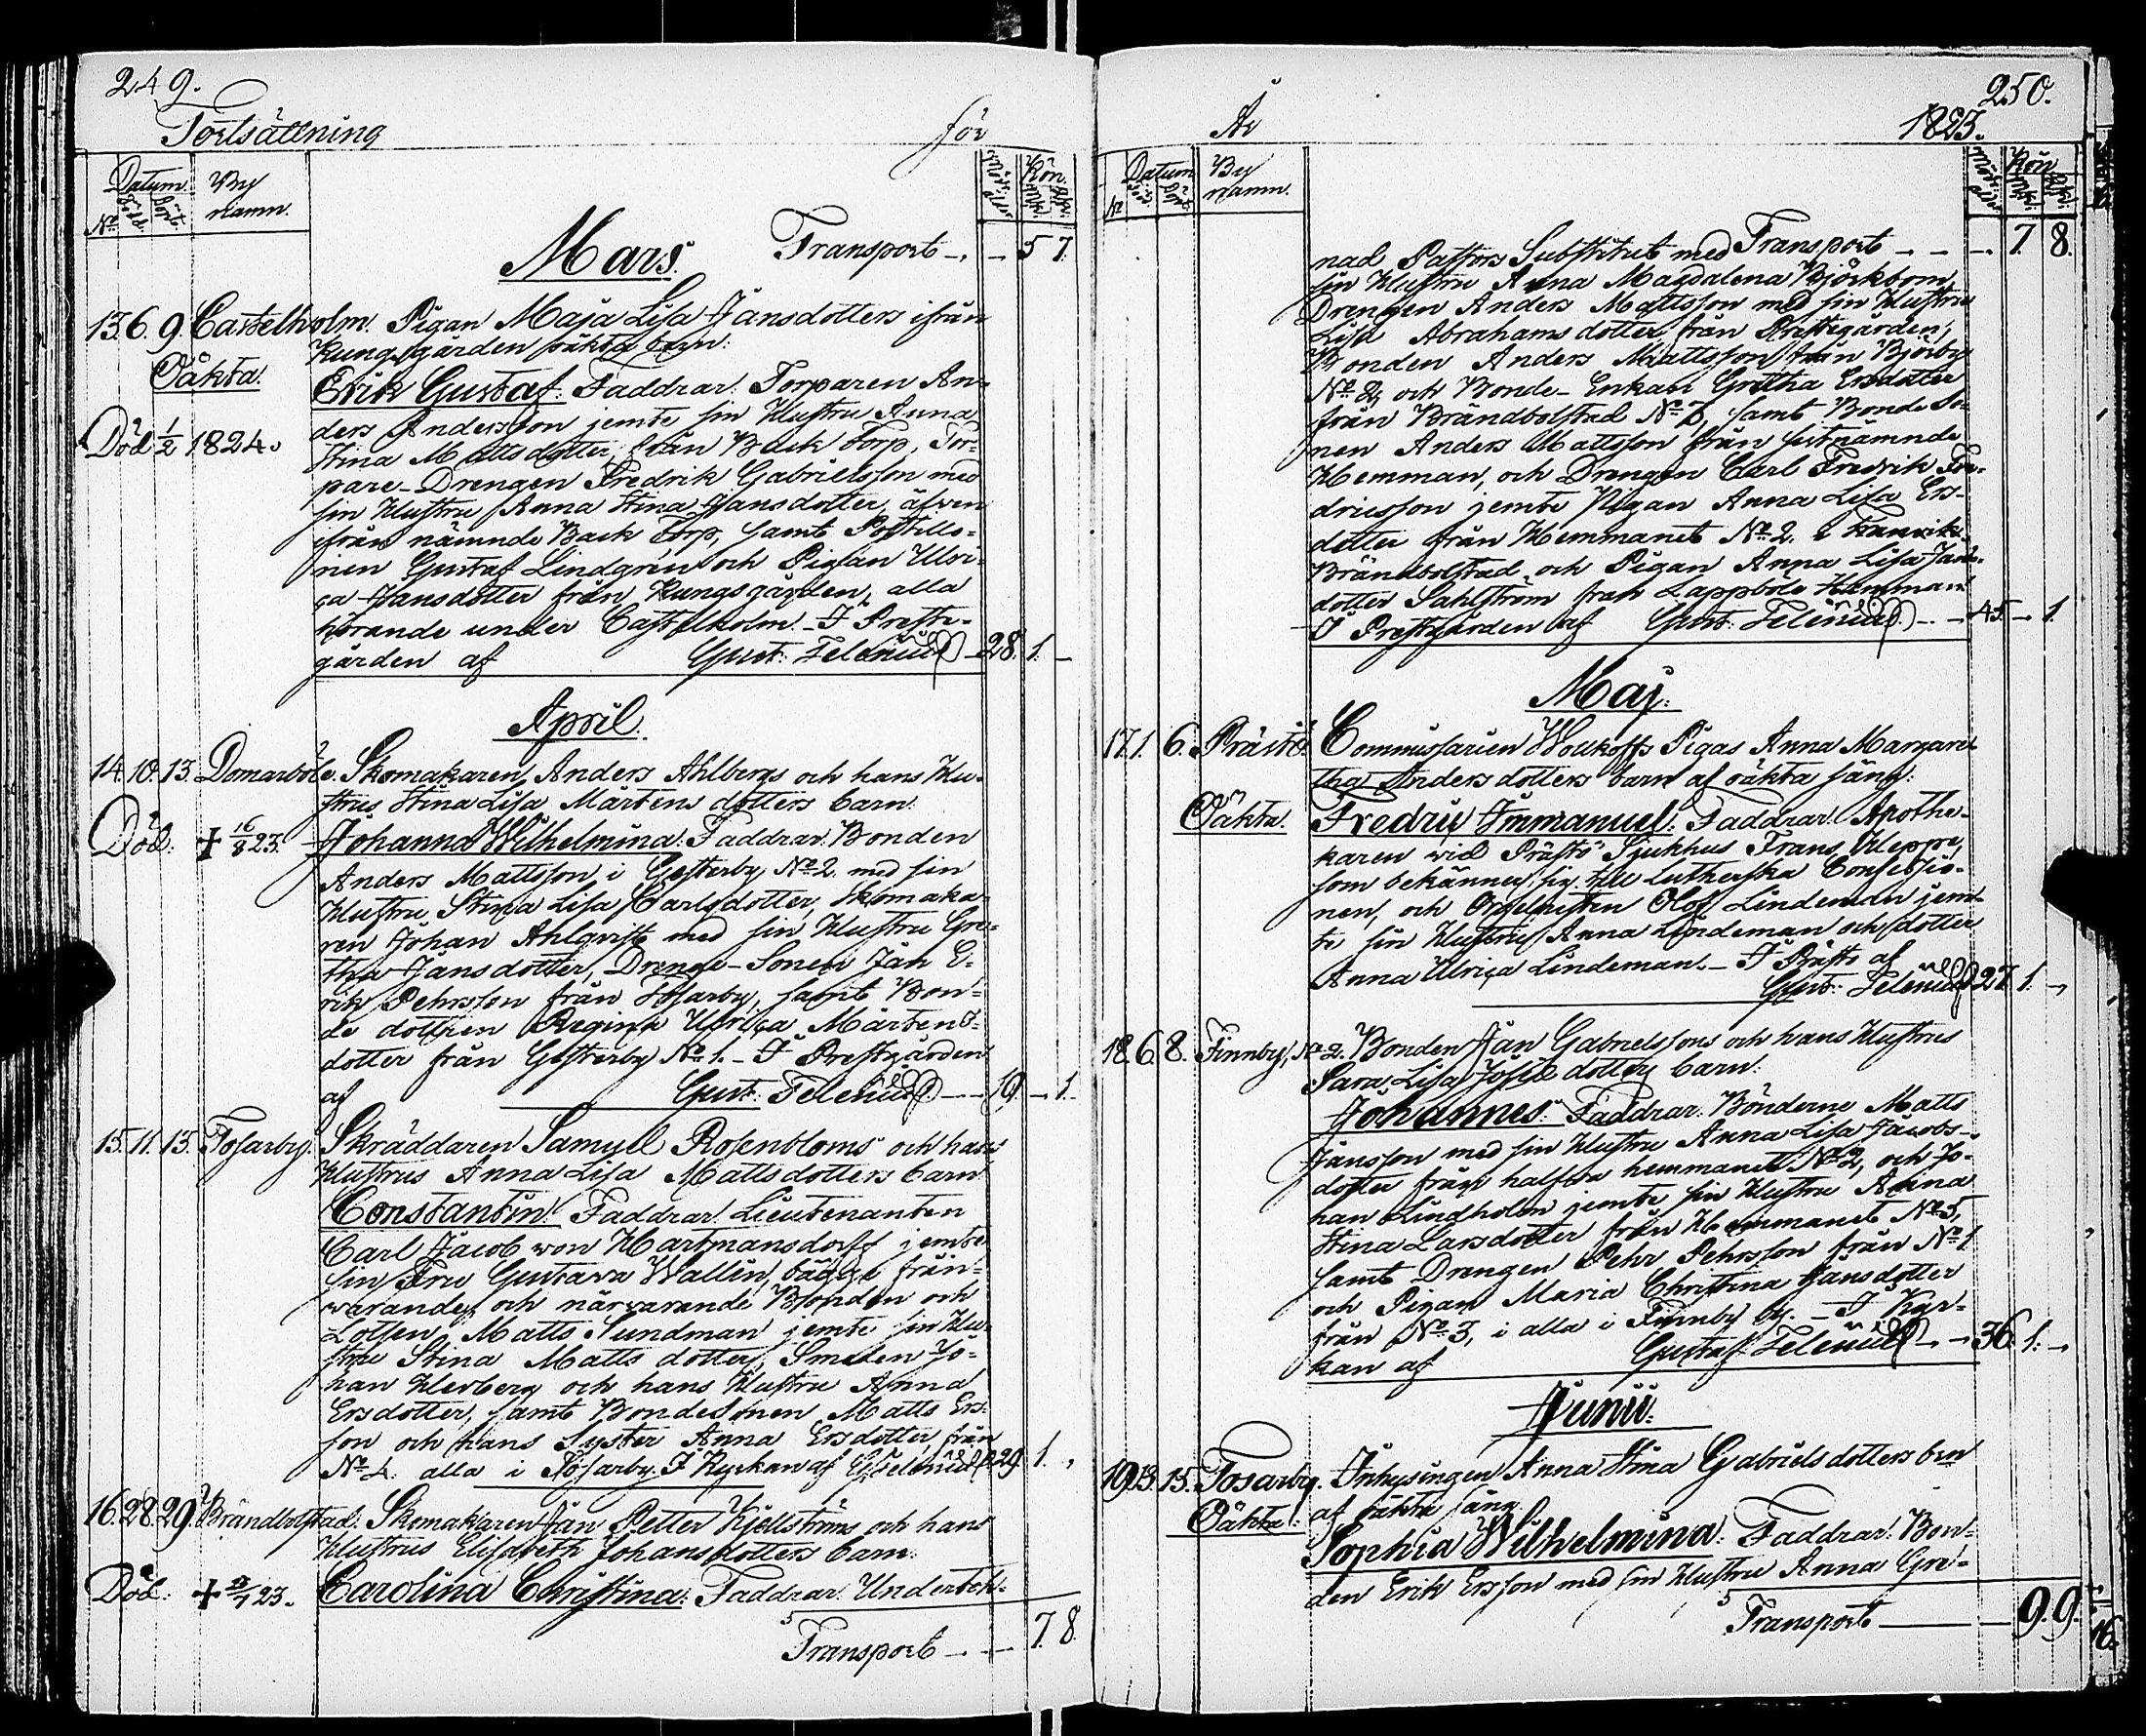 249.
Fortsättning för
No: Datum född. döpt. By namn. Möd. ålder Kön. Mk: Qk:
Mars. Transport 5 7.
13. 6. 9. Castelholm. Pigan Maja Lisa Jansdotters ifrån
Kungsgården oäkta barn:
Oäkta.
Erik Gustaf. Faddrar. Torparen An-
ders Andersson jemte sin Hustru Anna
Död 1/2 1824.
Stina Mattsdotter, från Back Torp, Tor-
pare-Drengen Fredrik Gabrielsson med
sin Hustru Anna Stina Jansdotter, äfven
ifrån nämnde Back Torp, samt Postillo-
nen Gustaf Lindgrén och Pigan Ulri-
ca Jansdotter från Kungsgården, alla
hörande under Castelholm. - I Preste-
gården af Gust: Felenius 28. 1. -
April.
14. 10. 13. Domarböle. Skomakaren Anders Ahlbergs och hans Hu-
strus Stina Lisa Mårtens dotters barn.
Död. + 16/8 23. Johanna Wilhelmina. Faddrar. Bonden
Anders Mattsson i Gesterby No 2. med sin
Hustru Stina Lisa Carlsdotter, Skomaka-
ren Johan Ahlqvist med sin Hustru Gre-
tha Jansdotter, Drenge-Sonen Jan E-
rik Pehrsson från Tosarby, samt Bon-
de dottren Regina Ulrica Mårtens-
dotter från Gesterby No 1. - I Prestgården
af Gust: Felenius 19. - 1.
15. 11. 13. Tosarby. Skräddaren Samuel Rosenbloms och hans
Hustrus Anna Lisa Mattsdotters barn
Constantin. Faddrar. Lieutenanten
Carl Jacob von Hartmansdorff jemte
sin Fru Gustava Wallin, bägge från-
varande, och närvarande Bonden och
Lotsen Matts Sundman jemte sin Hu-
stru Stina Matts dotter, Smeden Jo-
han Herberg och hans Hustru Anna
Ersdotter, samt Bondesonen Matts Ers-
son och hans Syster Anna Ersdotter från
No 4. alla i Tosarby. I Kyrkan af G: Felenius 29. 1.
16. 28. 29. Brändbolstad. Skomakaren Jan Petter Kjellströms och hans
Hustrus Elisabeth Johansdotters barn.
Död. + 23. Carolina Christina. Faddrar. Underteck-
Transport 7. 8.
250.
År 1823.
No Datum född. döpt. By namn. Möd. ålder Kön Mk: Qk:
nad Pastors Substitut med Transport 7. 8.
sin Hustru Anna Magdalena Björkbom,
Drengen Anders Mattsson med sin Hustru
Lisa Abrahams dotter från Prestegården,
Bonden Anders Mattsson från Björby
No 2, och Bonde-Enkan Gretha Ersdotter
från Brändbolstad No 2, samt Bonde So-
nen Anders Mattsson från sistnämnde
Hemman, och Drengen Carl Fredrik Fre-
dricsson jemte Pigan Anna Lisa Ers-
dotter från Hemmanet No 2. i
Brändbolstad, och Pigan Anna Lisa Jans-
dotter Sahlström från Lappböle Hemman
I Prestgården af Gust: Felenius 45. - 1.
Maj.
17. 1. 6. Prästö. Commissarien Wolkoffs Pigas Anna Margare-
tha Anders dotters barn af oäkta säng:
Oäkta. Fredric Immanuel. Faddrar. Apothe-
karen vid Prästö Sjukhus Frans Heppe,
som bekänner sig till Lutherska Confessio-
nen, och Olof Lindeman jem-
te sin Hustru Anna Lindeman och dotter
Anna Ulrica Lindeman. - I Prästö af
Gust: Felenius 27. 1. -
18. 6. 8. Finnby, No 2. Bonden Jan Gabrielssons och hans Hustrus
Sara Lisa Josephs dotters barn.
Johannes. Faddrar. Bönderne Matts
Jansson med sin Hustru Anna Lisa Jacobs-
dotter från halfva hemmanet No 2, och Jo-
han Lindholm jemte sin Hustru Anna
Stina Larsdotter från Hemmanet No 5,
samt Drengen Pehr Pehrsson från No 1
och Pigan Maria Christina Jansdotter
från No 3, i alla i Finnby by. - I Kyr-
kan af Gustaf Felenius 36. 1. -
Junii.
19. 13. 15. Tosarby. Inhysingen Anna Stina Gabriels dotters barn
Oäkta. af oäkta säng
Sophia Wilhelmina. Faddrar. Bon-
den Erik Ersson med sin Hustru Anna Gre-
Transport 9. 9.
16.